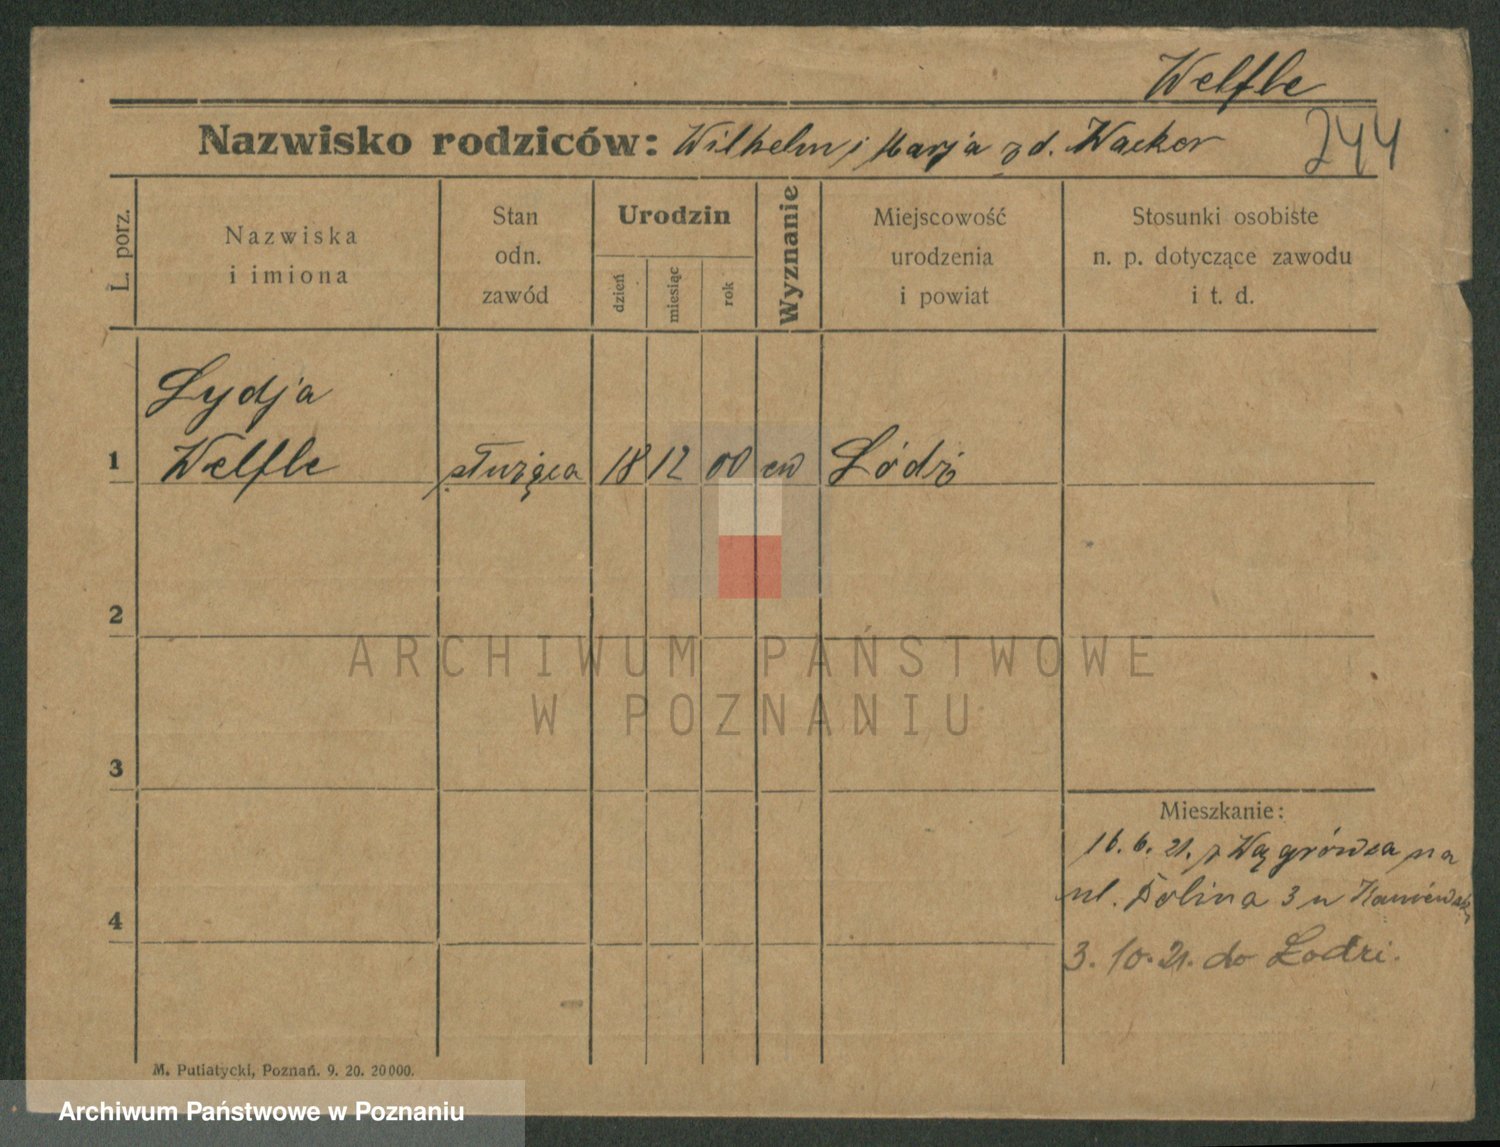 Welfle
Nazwisko rodziców: Wilhelm i Marja z d. Wacker
244
L. porz.
Nazwiska
i imiona
Stan
odn.
zawód
Urodzin
dzień
miesiąc
rok
Wyznanie
Miejscowość
urodzenia
i powiat
Stosunki osobiste
n. p. dotyczące zawodu
i t. d.
Lydja
1 Welfle służąca 18 12 00 ew Łódź
2
3
4
Mieszkanie:
16. 6. 21. z Wągrówca na
ul. Dolina 3 u
3. 10. 21. do Łodzi.
ARCHIWUM PAŃSTWOWE
W POZNANIU
M. Putiatycki, Poznań. 9. 20. 20000.
Archiwum Państwowe w Poznaniu